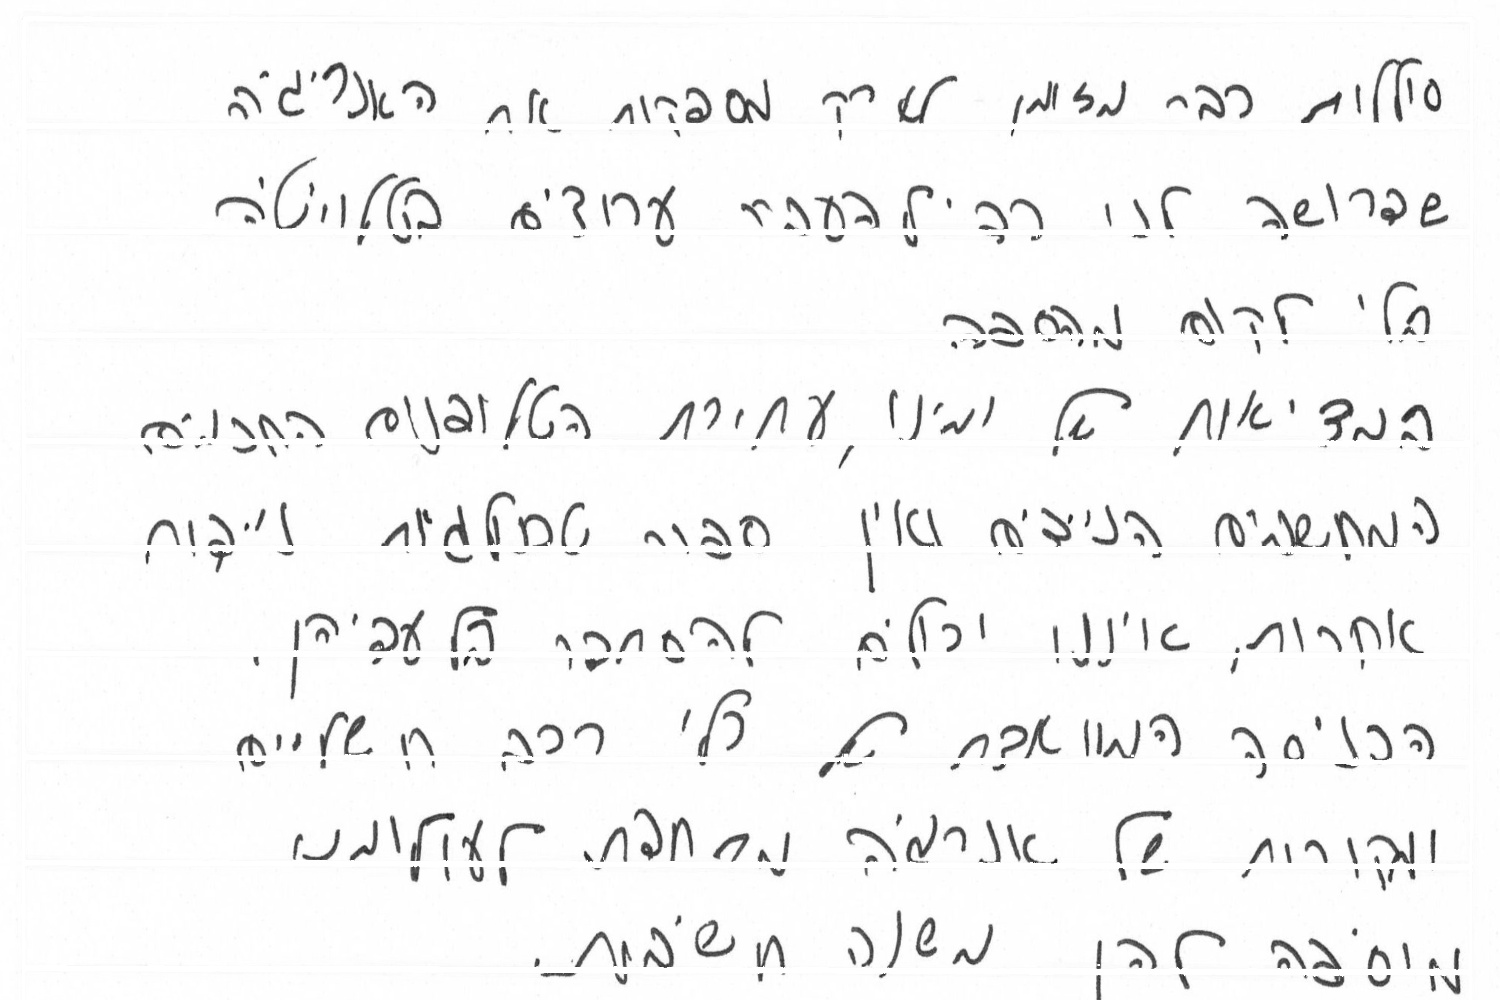 סוללות כבר מזומן לא רק מספקות את האנרגיה
שדרושה לנו כדי להעביר ערוצים בטלוויזיה
בלי לקום מהספה
המציאות של ימינו, עתירת הטלפונים החכמים
המחשבים הניידים ואין ספור טכנולוגיות ניידות
אחרות, איננו יכולים להסתבר בלעדיהן.
הכניסה המוואבת של כלי רכב חשמליים
ומקורות של אנרגיה מתחדשת לעולמנו
מוסיפה להן משנה חשיבות.